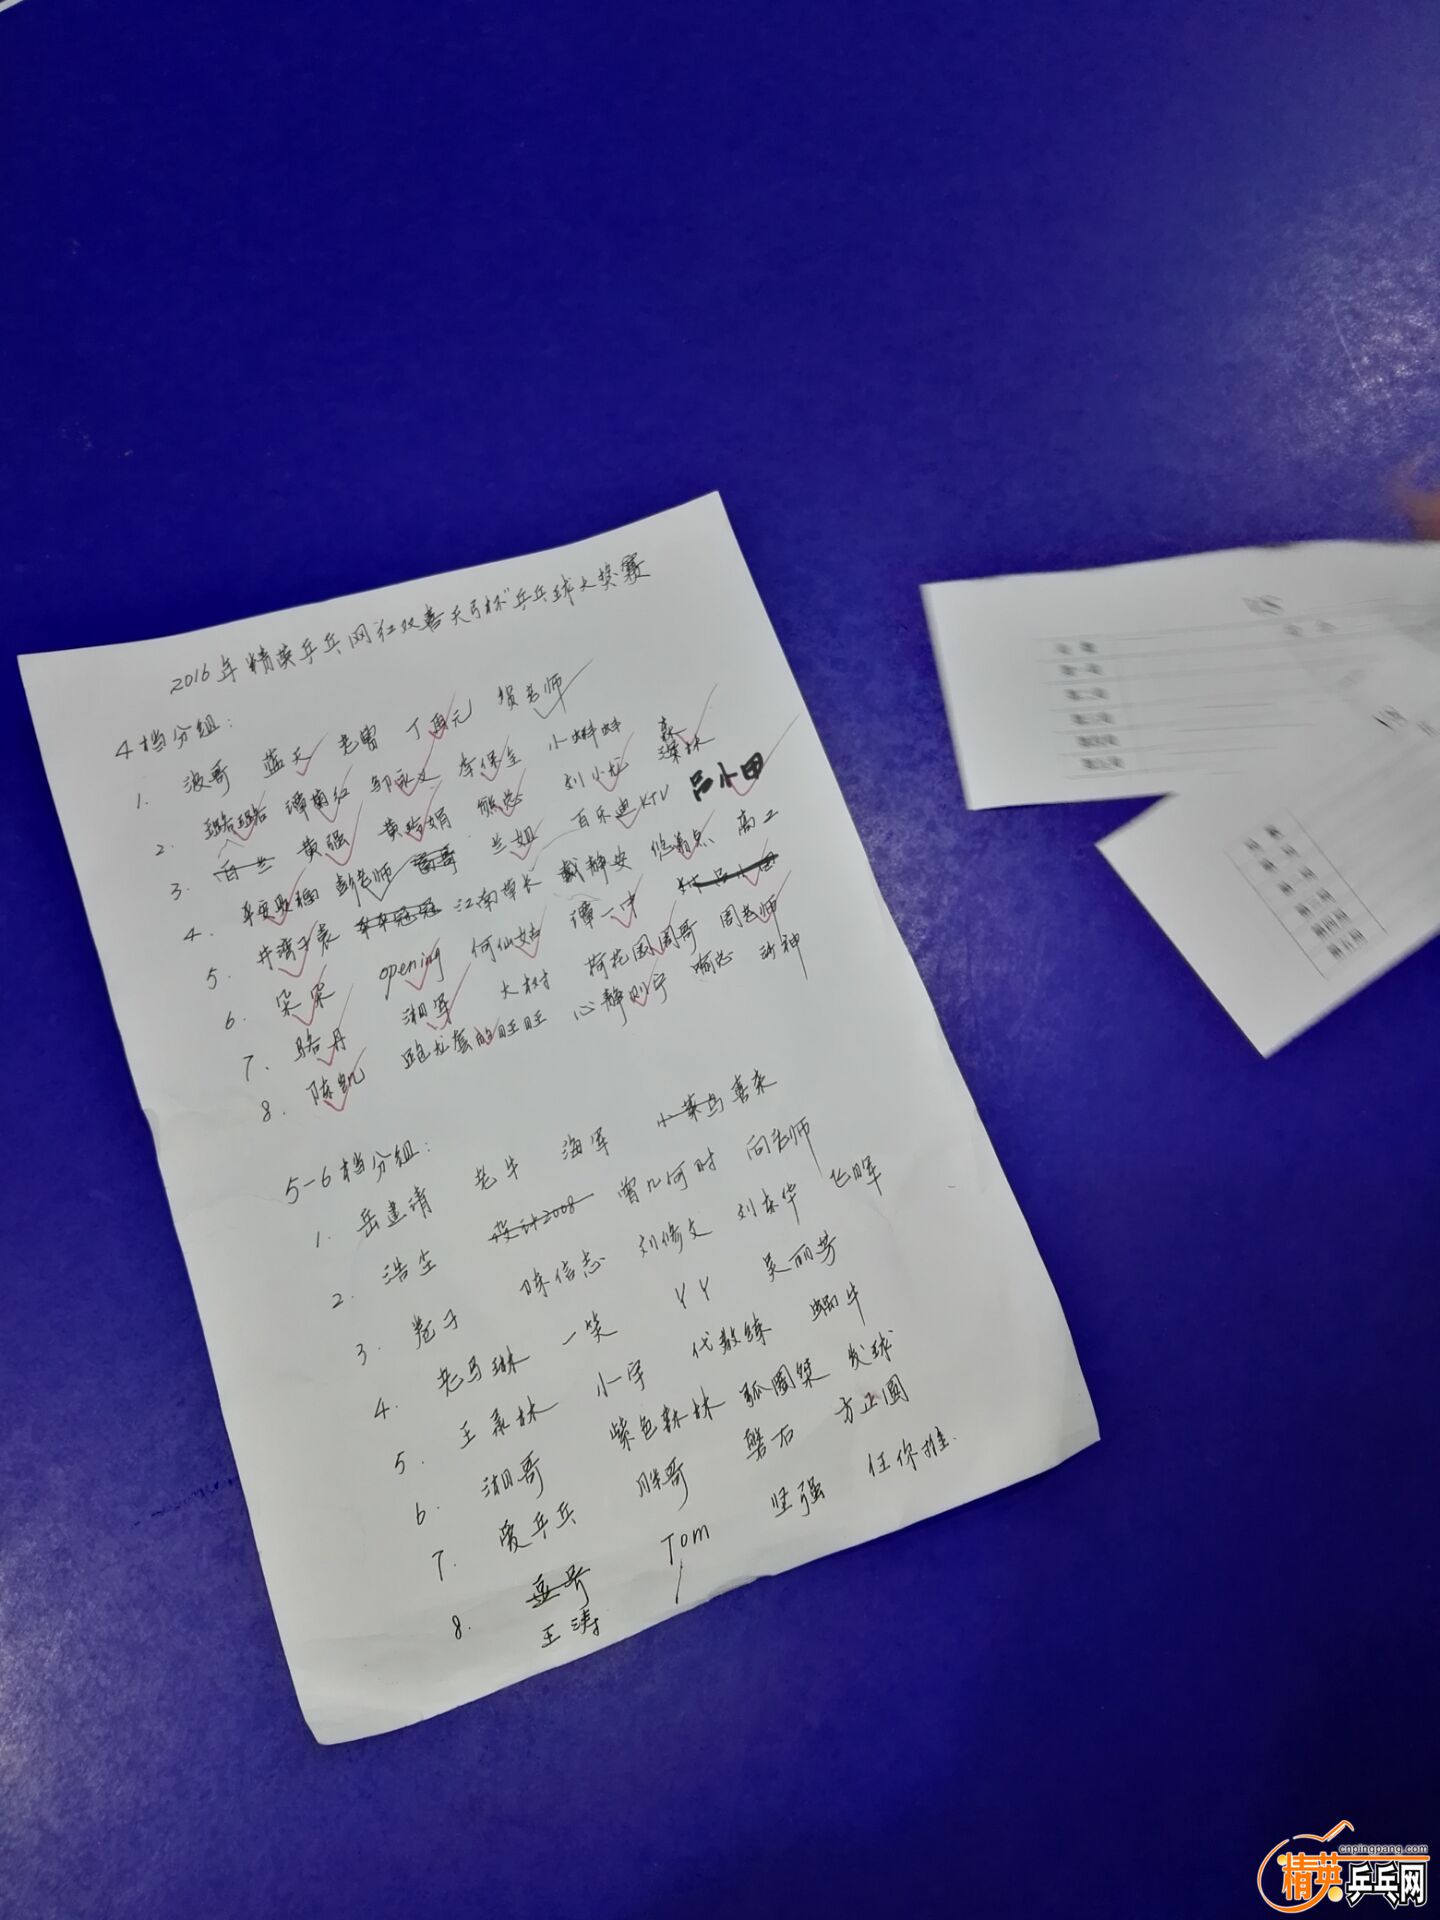 2016年精英乒乓网红双喜天弓杯"乒乓球大奖赛
4档分组:
1. 波哥 蓝天 老曾 丁再元 贺老师
2. 璐璐 谭菊红 邹永之 李保全 小蚌蚌 森
深林
3. 百兰 黄强 黄玲娟 熊总 刘小龙
4. 彭老师 兰姐 百乐迪KTV 吕小田
5. 井湾子袁 江南草长 戴静安 悠着点 高工
6. 呆呆 opening 何仙姑 谭一中 吕小田
7. 骆丹 湘军 大树 荷花园周哥 周老师
8. 陈凯 跑龙套的旺旺 心静则宁 喻总 沙神
5-6档分组:
1. 岳建清 老牛 海军 小菜鸟 喜杂
2. 浩尘 设计2008 曾几何时 向老师
3. 卷子 陈信志 刘修文 刘东华 伍晖
4. 老马琳 一笑 YY 吴丽芳
5. 王录林 小宇 代教练 蜗牛
6. 湘哥 紫色森林 弧圈梁 发球
7. 爱乒乓 胖哥 磐石 方正圆
8. Tom 坚强 任你推.
王涛
cnpingpang.com
精英乒乓网